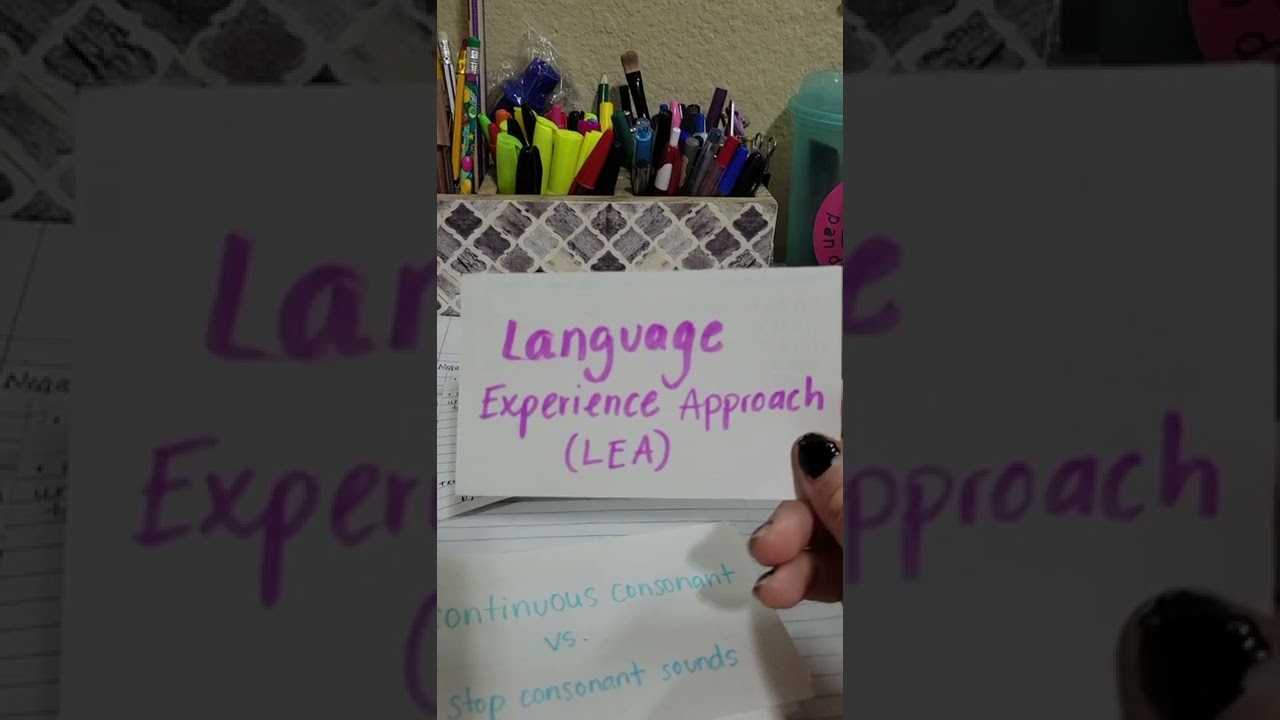 Language
Experience Approach
(LEA)
continuous consonant
vs.
stop consonant sounds